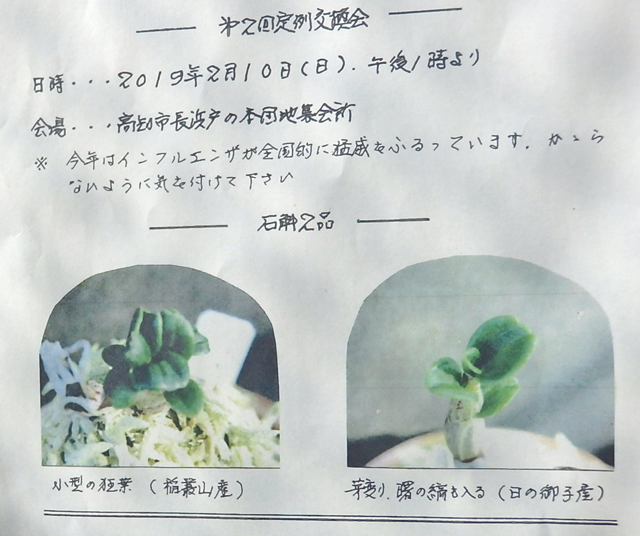 第2回定例交換会
日時・・・2019年2月10日(日)、午後1時より
会場・・・高知市長浜戸の本団地集会所
※ 今年はインフルエンザが全国的に猛威をふるっています。かゝら
ないように気を付けて下さい
石斛2品
小型の狂葉 (稲叢山産)
芽変り、曙の縞も入る (日の御子産)